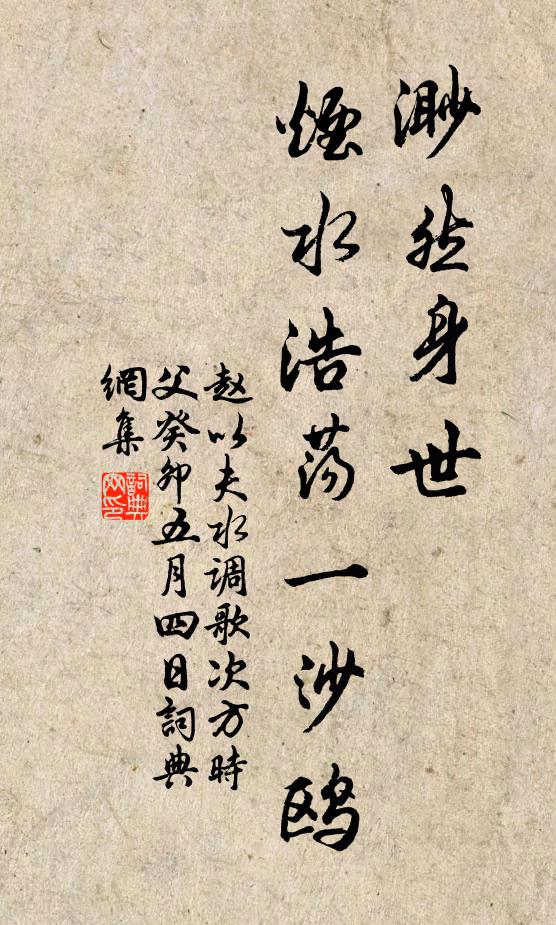 渺然身世
煙水浩荡一沙鸥
赵以夫水调歌次方時
父癸卯五月四日詞典
網集
詞典
网印